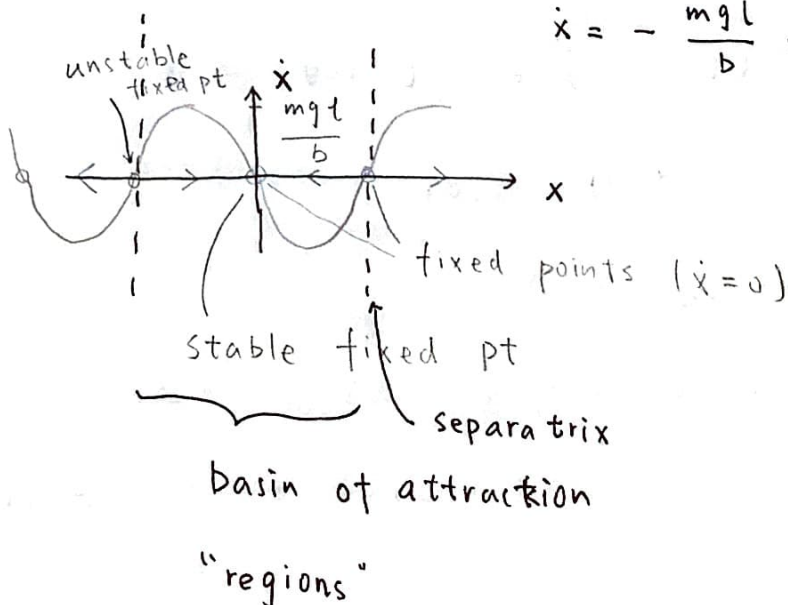 ẋ = - mgl
b
unstable
fixed pt
ẋ
mgl
b
x
fixed points (ẋ=0)
stable fixed pt
separatrix
basin of attraction
"regions"